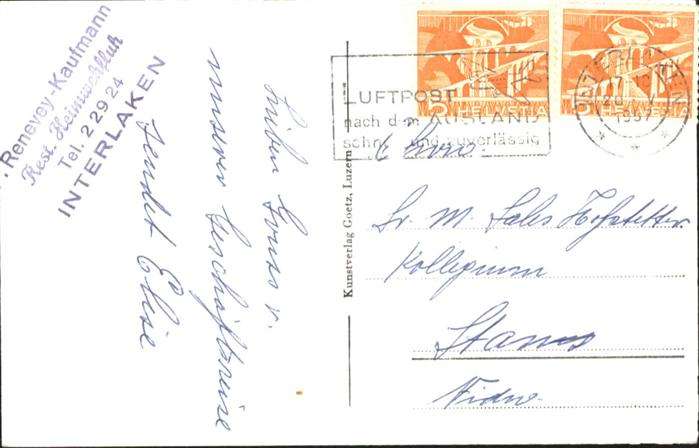 . Renevey-Kaufmann
Rest. Heimwehfluh
Tel. 2 29 24
INTERLAKEN
Lieben Gruss v.
unserer Geschäftsreise
sendet Elise
Kunstverlag Goetz, Luzern
5 HELVETIA
5 HELVETIA
LUFTPOST
nach dem AUSLAND
schnell und zuverlässig
195
Sr. M. Sales Hofstetter
Kollegium
Stans
Nidw.